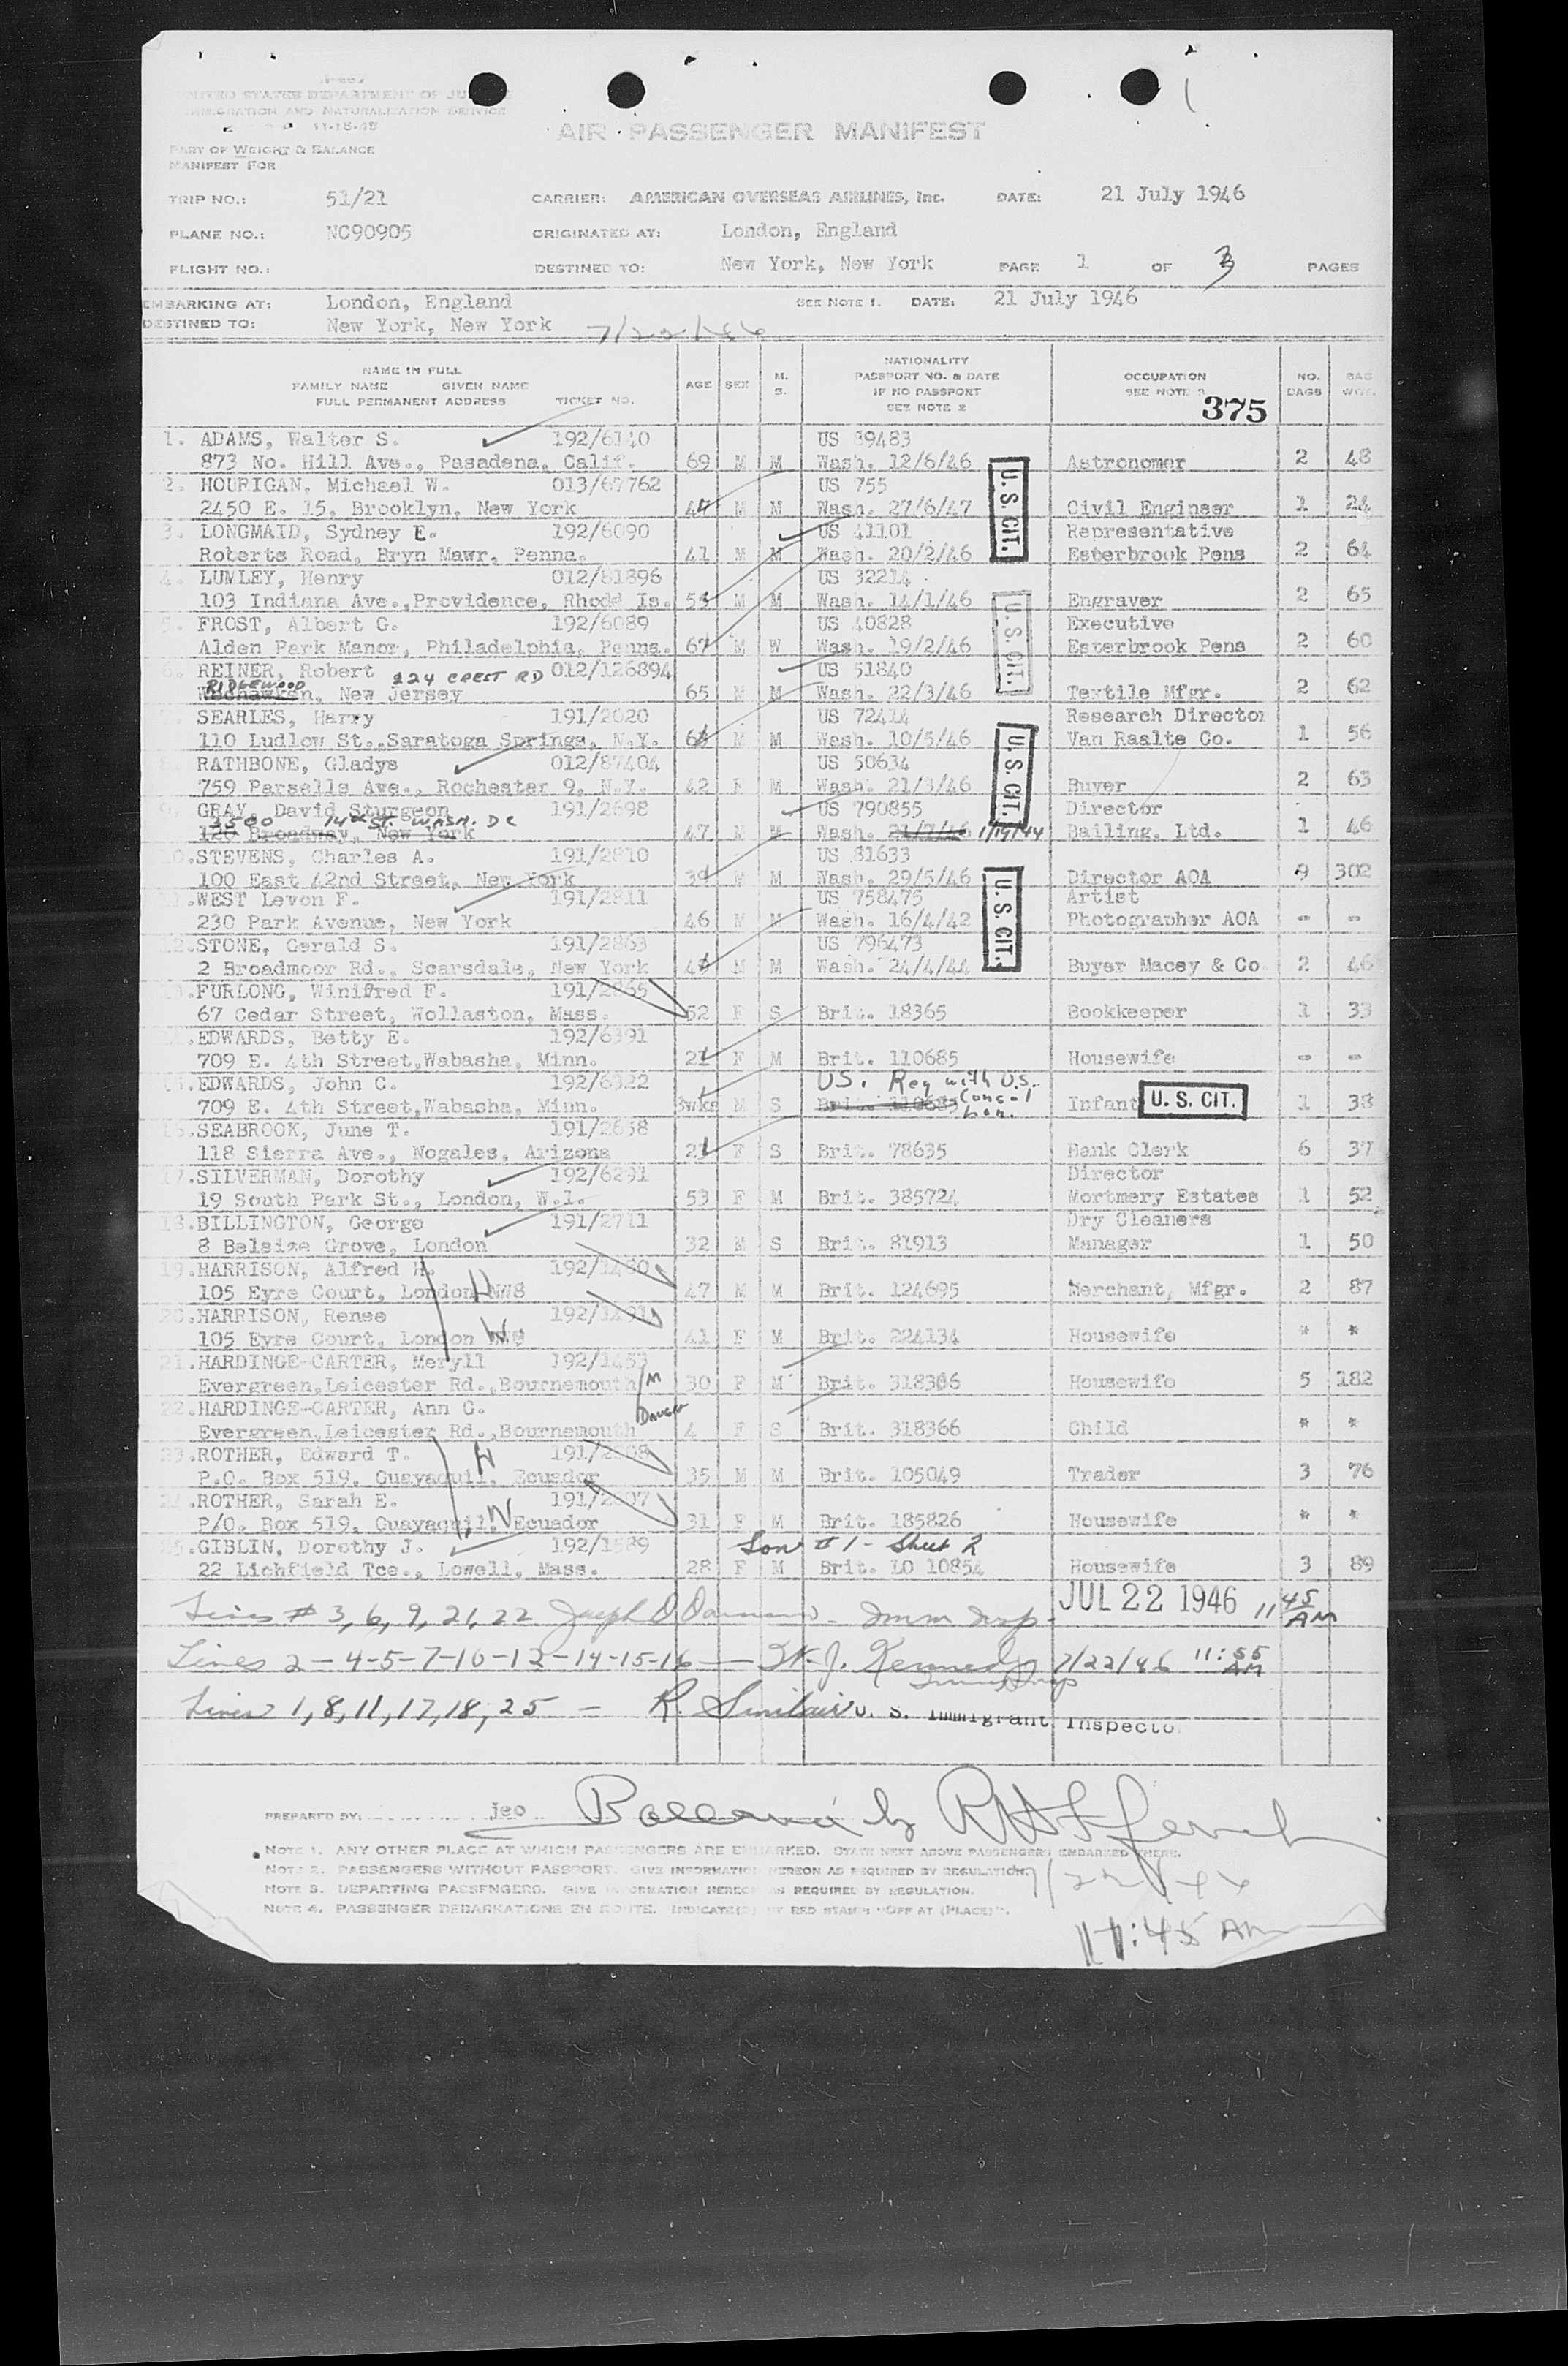 UNITED STATES DEPARTMENT OF JUSTICE
IMMIGRATION AND NATURALIZATION SERVICE
11-18-45
AIR PASSENGER MANIFEST
PART OF WEIGHT & BALANCE
MANIFEST FOR
TRIP NO.: 51/21 CARRIER: AMERICAN OVERSEAS AIRLINES, Inc. DATE: 21 July 1946
PLANE NO.: NC90905 ORIGINATED AT: London, England
FLIGHT NO.: DESTINED TO: New York, New York PAGE 1 OF 3 PAGES
EMBARKING AT: London, England SEE NOTE 1. DATE: 21 July 1946
DESTINED TO: New York, New York 7/22/46
NAME IN FULL
FAMILY NAME GIVEN NAME
FULL PERMANENT ADDRESS TICKET NO. AGE SEX M. S. NATIONALITY PASSPORT NO. & DATE IF NO PASSPORT SEE NOTE 2 OCCUPATION SEE NOTE 3 NO. BAGS BAG WGT.
375
1. ADAMS, Walter S. 192/6140 US 39483
873 No. Hill Ave., Pasadena, Calif. 69 M M Wash. 12/6/46 Astronomer 2 48
2. HOURIGAN, Michael W. 013/67762 US 755
2450 E. 15, Brooklyn, New York 47 M M Wash. 27/6/47 Civil Engineer 1 24
3. LONGMAID, Sydney E. 192/6090 US 41101 Representative
Roberts Road, Bryn Mawr, Penna. 41 M M Wash. 20/2/46 Esterbrook Pens 2 64
U.S. CIT.
4. LUMLEY, Henry 012/81896 US 32214
103 Indiana Ave.,Providence, Rhode Is. 54 M M Wash. 14/1/46 Engraver 2 65
5. FROST, Albert G. 192/6089 US 40828 Executive
Alden Park Manor, Philadelphia, Penna. 67 M W Wash. 19/2/46 Esterbrook Pens 2 60
U.S. CIT.
6. REINER, Robert 224 CREST RD 012/126894 US 51840
RIDGEWOOD
Weehawken, New Jersey 65 M M Wash. 22/3/46 Textile Mfgr. 2 62
SEARLES, Harry 191/2020 US 72414 Research Director
110 Ludlow St.,Saratoga Springs, N.Y. 64 M M Wash. 10/5/46 Van Raalte Co. 1 56
8. RATHBONE, Gladys 012/87404 US 50634
759 Parsells Ave., Rochester 9, N.Y. 42 F M Wash. 21/3/46 Buyer 2 63
U.S. CIT.
9. GRAY, David Sturgeon 191/2698 US 790855 Director
3500 14th ST. WASH. DC
120 Broadway, New York 47 M M Wash. 21/7/46 1/19/44 Bailing, Ltd. 1 46
10.STEVENS, Charles A. 191/2810 US 81633
100 East 42nd Street, New York 39 M M Wash. 29/5/46 Director AOA 9 302
11.WEST Levon F. 191/2811 US 758475 Artist
230 Park Avenue, New York 46 M M Wash. 16/4/42 Photographer AOA - -
U.S. CIT.
12.STONE, Gerald S. 191/2863 US 796473
2 Broadmoor Rd., Scarsdale, New York 48 M M Wash. 24/4/44 Buyer Macey & Co 2 46
13.FURLONG, Winifred F. 191/2865
67 Cedar Street, Wollaston, Mass. 52 F S Brit. 18365 Bookkeeper 1 33
14.EDWARDS, Betty E. 192/6391
709 E. 4th Street,Wabasha, Minn. 21 F M Brit. 110685 Housewife - -
15.EDWARDS, John C. 192/6322 US. Reg with U.S. Consul Lon.
709 E. 4th Street,Wabasha, Minn. 3wks M S Brit. 110685 Infant U. S. CIT. 1 38
16.SEABROOK, June T. 191/2658
118 Sierra Ave., Nogales, Arizona 21 F S Brit. 78635 Bank Clerk 6 37
17.SILVERMAN, Dorothy 192/6231 Director
19 South Park St., London, W.1. 53 F M Brit. 385724 Mortmery Estates 1 52
18.BILLINGTON, George 191/2711 Dry Cleaners
8 Belsize Grove, London 32 M S Brit. 81913 Manager 1 50
19.HARRISON, Alfred H. 192/1480
105 Eyre Court, London NW8 H 47 M M Brit. 124695 Merchant, Mfgr. 2 87
20.HARRISON, Renee 192/1491
105 Eyre Court, London NW8 W 41 F M Brit. 224134 Housewife * *
21.HARDINGE-CARTER, Meryll 192/1453
Evergreen,Leicester Rd.,Bournemouth M 30 F M Brit. 318366 Housewife 5 182
22.HARDINGE-CARTER, Ann C. Daugh
Evergreen,Leicester Rd.,Bournemouth 4 F S Brit. 318366 Child * *
23.ROTHER, Edward T. H 191/2808
P.O. Box 519, Guayaquil, Ecuador 35 M M Brit. 105049 Trader 3 76
24.ROTHER, Sarah E. 191/2807
P/O. Box 519, Guayaquil, Ecuador W 31 F M Brit. 185826 Housewife * *
25.GIBLIN, Dorothy J. 192/1589 Son #1 - Sheet 2
22 Lichfield Tce., Lowell, Mass. 28 F M Brit. LO 10854 Housewife 3 89
Lines # 3, 6, 9, 21, 22 Joseph D. - Imm Insp - JUL 22 1946 11 45 AM
Lines 2-4-5-7-10-12-14-15-16 - W.J. Kennedy 7/22/46 11:55 AM
Imm Insp
Lines 1, 8, 11, 17, 18, 25 - R. Sinclair U. S. Immigrant Inspector
PREPARED BY: jeo by
NOTE 1. ANY OTHER PLACE AT WHICH PASSENGERS ARE EMBARKED. STATE NEXT ABOVE PASSENGERS EMBARKED THERE.
NOTE 2. PASSENGERS WITHOUT PASSPORT. GIVE INFORMATION HEREON AS REQUIRED BY REGULATION.
NOTE 3. DEPARTING PASSENGERS. GIVE INFORMATION HEREON AS REQUIRED BY REGULATION.
NOTE 4. PASSENGER DEBARKATIONS EN ROUTE. INDICATE BY RED STAMP "OFF AT (PLACE)".
7/22/46
11:45 AM